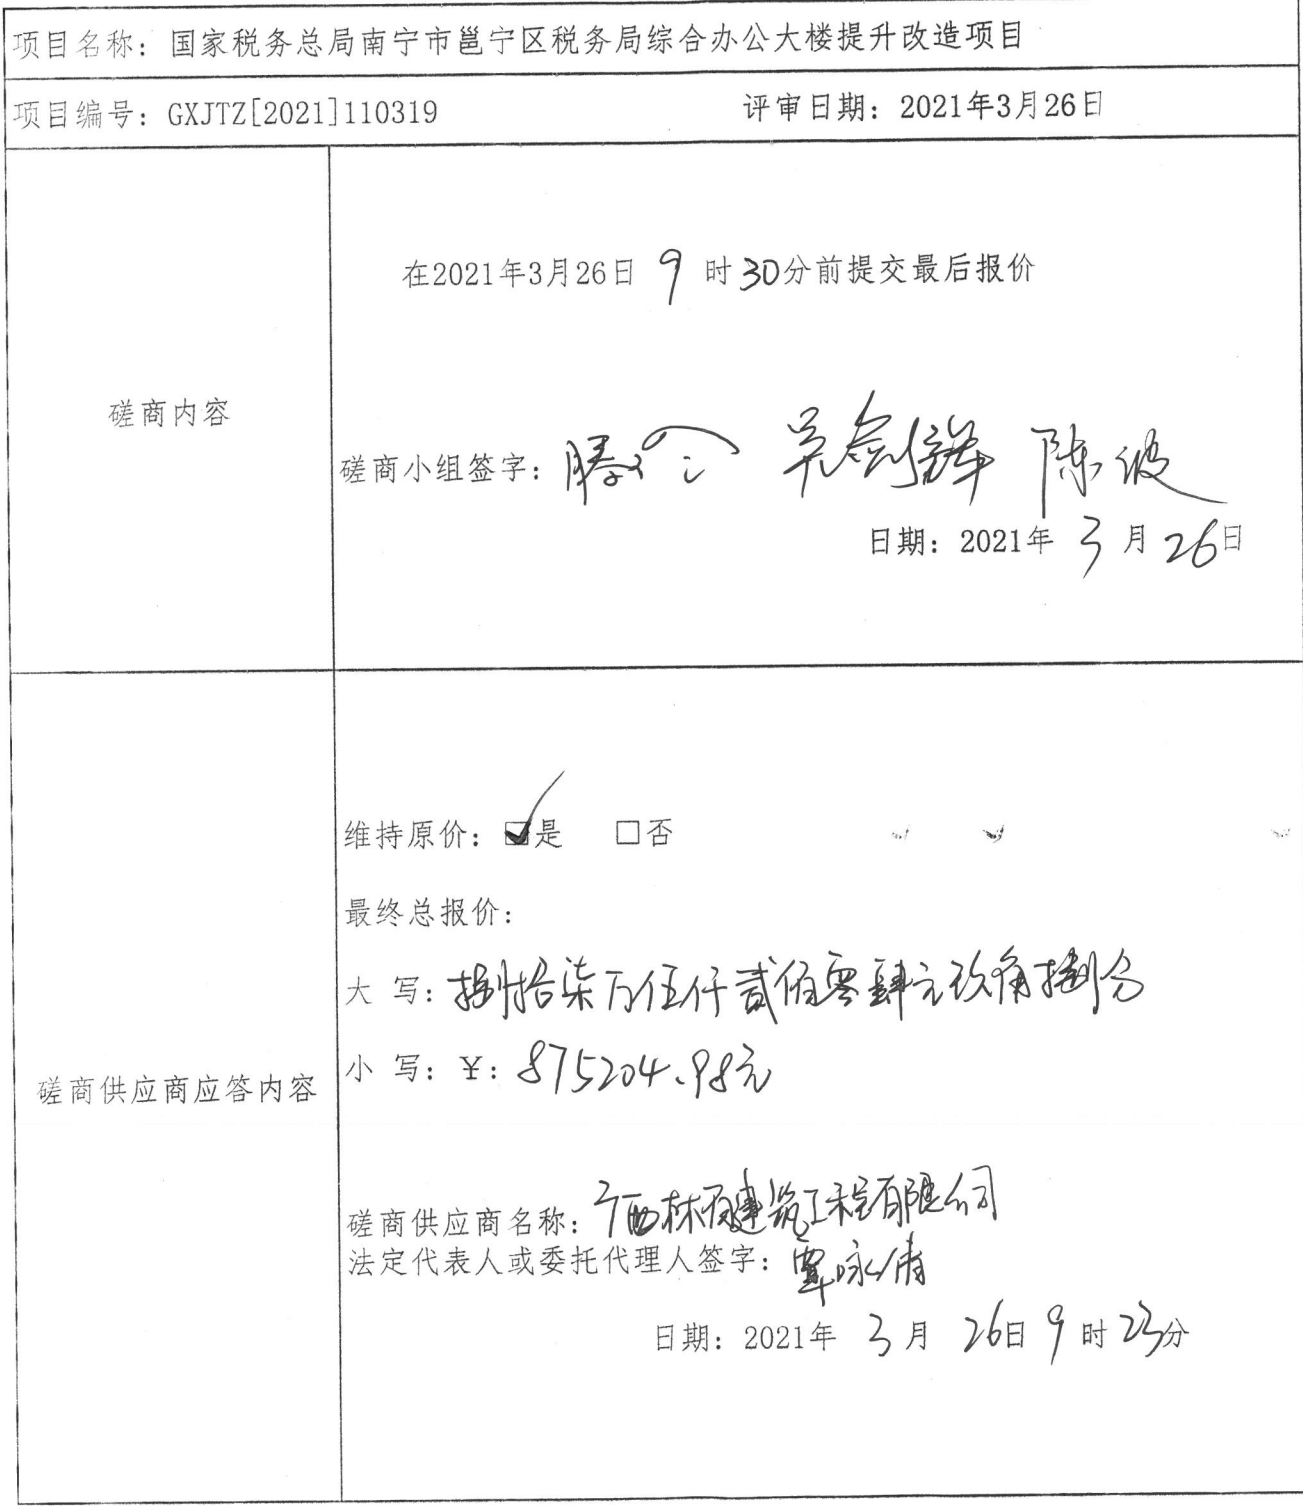 项目名称：国家税务总局南宁市邕宁区税务局综合办公大楼提升改造项目
项目编号：GXJTZ[2021]110319 评审日期：2021年3月26日
在2021年3月26日 9 时 30分前提交最后报价
磋商内容
磋商小组签字： 吴剑锋 陈波
日期：2021年 3 月 26日
维持原价：☑是 □否
最终总报价：
大 写：捌拾柒万伍仟贰佰零肆元玖角捌分
小 写：¥：875204.98元
磋商供应商应答内容
磋商供应商名称：广西林建筑工程有限公司
法定代表人或委托代理人签字：覃咏倩
日期：2021年 3 月 26日 9 时 23分